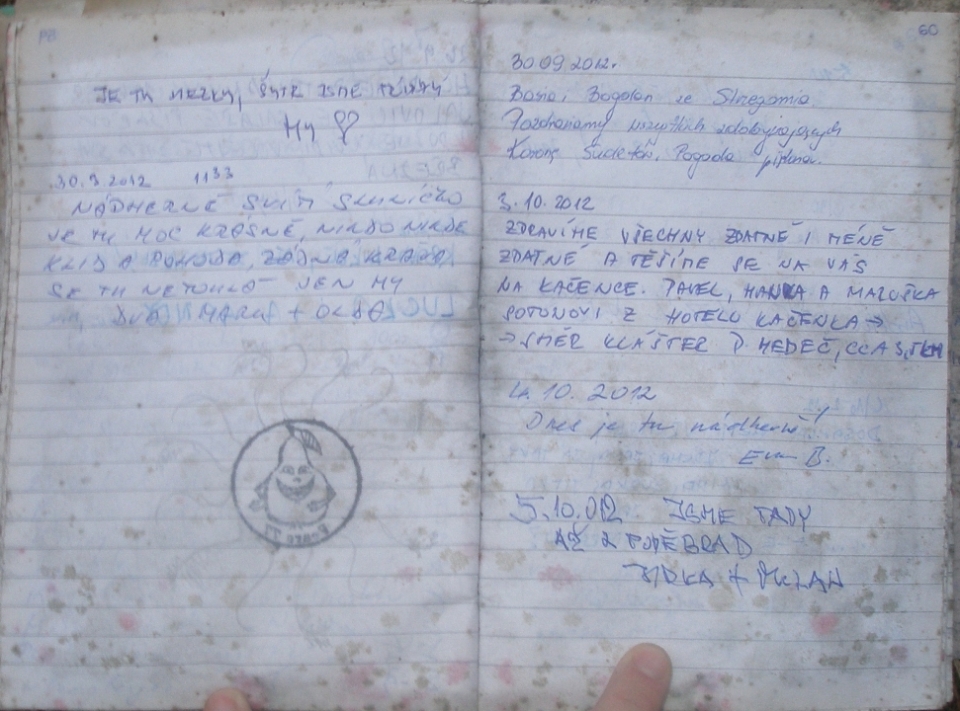 JE TU HEZKY,
MY
30.9.2012 1133
NÁDHERNĚ SVÍTÍ SLUNÍČKO
JE TU MOC KRÁSNĚ, NIKDO NIKDE
KLID A POHODA,
SE TU NETOULÁ JEN MY
60
30.09.2012.
Basia i Bogdan ze Strzegomia
Pozdrawiamy wszystkich zdobywających
Koronę Sudetów. Pogoda piękna.
3.10.2012
ZDRAVÍME VŠECHNY ZDATNÉ I MÉNĚ
ZDATNÉ A TĚŠÍME SE NA VÁS
NA KAČENCE. PAVEL, HANKA A MARUŠKA
POTONOVI Z HOTELU KAČENKA →
→ SMĚR KLÁŠTER D HEDEČ, CCA 5,5KM
4.10.2012
Dnes je tu nádherně!
Eva B.
5.10.012 JSME TADY
AŽ Z PODĚBRAD
JIRKA + MILAN